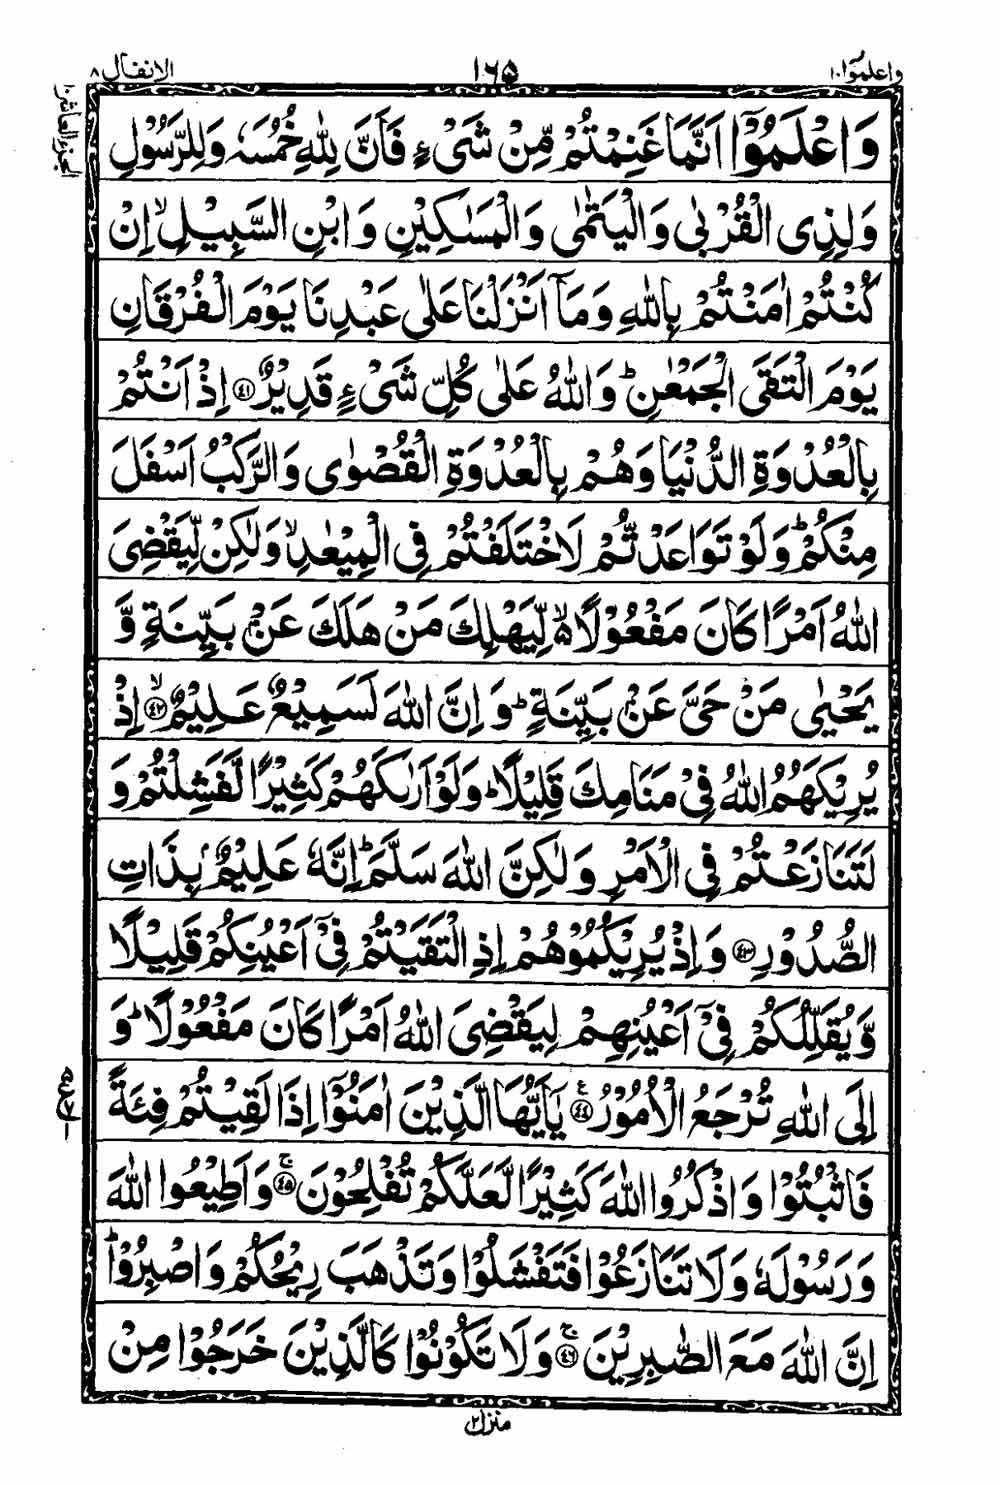 واعلموا ١٠
١٦٥
الانفال ٨
الجزء العاشر ١٠
وَاعْلَمُوْۤا اَنَّمَا غَنِمْتُمْ مِّنْ شَیْءٍ فَاَنَّ لِلّٰهِ خُمُسَهٗ وَلِلرَّسُوْلِ
وَلِذِی الْقُرْبٰی وَالْیَتٰمٰی وَالْمَسٰكِیْنِ وَابْنِ السَّبِیْلِ ۙ اِنْ
كُنْتُمْ اٰمَنْتُمْ بِاللّٰهِ وَمَاۤ اَنْزَلْنَا عَلٰی عَبْدِنَا یَوْمَ الْفُرْقَانِ
یَوْمَ الْتَقَی الْجَمْعٰنِ ؕ وَاللّٰهُ عَلٰی كُلِّ شَیْءٍ قَدِیْرٌ ﴿٤١﴾ اِذْ اَنْتُمْ
بِالْعُدْوَةِ الدُّنْیَا وَهُمْ بِالْعُدْوَةِ الْقُصْوٰی وَالرَّكْبُ اَسْفَلَ
مِنْكُمْ ؕ وَلَوْ تَوَاعَدْتُّمْ لَاخْتَلَفْتُمْ فِی الْمِیْعٰدِ ۙ وَلٰكِنْ لِّیَقْضِیَ
اللّٰهُ اَمْرًا كَانَ مَفْعُوْلًا ۙ۬ لِّیَهْلِكَ مَنْ هَلَكَ عَنْۢ بَیِّنَةٍ وَّ
یَحْیٰی مَنْ حَیَّ عَنْۢ بَیِّنَةٍ ؕ وَاِنَّ اللّٰهَ لَسَمِیْعٌ عَلِیْمٌ ﴿٤٢﴾ ۙ اِذْ
یُرِیْكَهُمُ اللّٰهُ فِیْ مَنَامِكَ قَلِیْلًا ؕ وَلَوْ اَرٰىكَهُمْ كَثِیْرًا لَّفَشِلْتُمْ وَ
لَتَنَازَعْتُمْ فِی الْاَمْرِ وَلٰكِنَّ اللّٰهَ سَلَّمَ ؕ اِنَّهٗ عَلِیْمٌۢ بِذَاتِ
الصُّدُوْرِ ﴿٤٣﴾ وَاِذْ یُرِیْكُمُوْهُمْ اِذِ الْتَقَیْتُمْ فِیْۤ اَعْیُنِكُمْ قَلِیْلًا
وَّیُقَلِّلُكُمْ فِیْۤ اَعْیُنِهِمْ لِیَقْضِیَ اللّٰهُ اَمْرًا كَانَ مَفْعُوْلًا ؕ وَ
اِلَی اللّٰهِ تُرْجَعُ الْاُمُوْرُ ﴿٤٤﴾ ع یٰۤاَیُّهَا الَّذِیْنَ اٰمَنُوْۤا اِذَا لَقِیْتُمْ فِئَةً
فَاثْبُتُوْا وَاذْكُرُوا اللّٰهَ كَثِیْرًا لَّعَلَّكُمْ تُفْلِحُوْنَ ﴿٤٥﴾ ۚ وَاَطِیْعُوا اللّٰهَ
وَرَسُوْلَهٗ وَلَا تَنَازَعُوْا فَتَفْشَلُوْا وَتَذْهَبَ رِیْحُكُمْ وَاصْبِرُوْا ؕ
اِنَّ اللّٰهَ مَعَ الصّٰبِرِیْنَ ﴿٤٦﴾ ۚ وَلَا تَكُوْنُوْا كَالَّذِیْنَ خَرَجُوْا مِنْ
منزل ٢